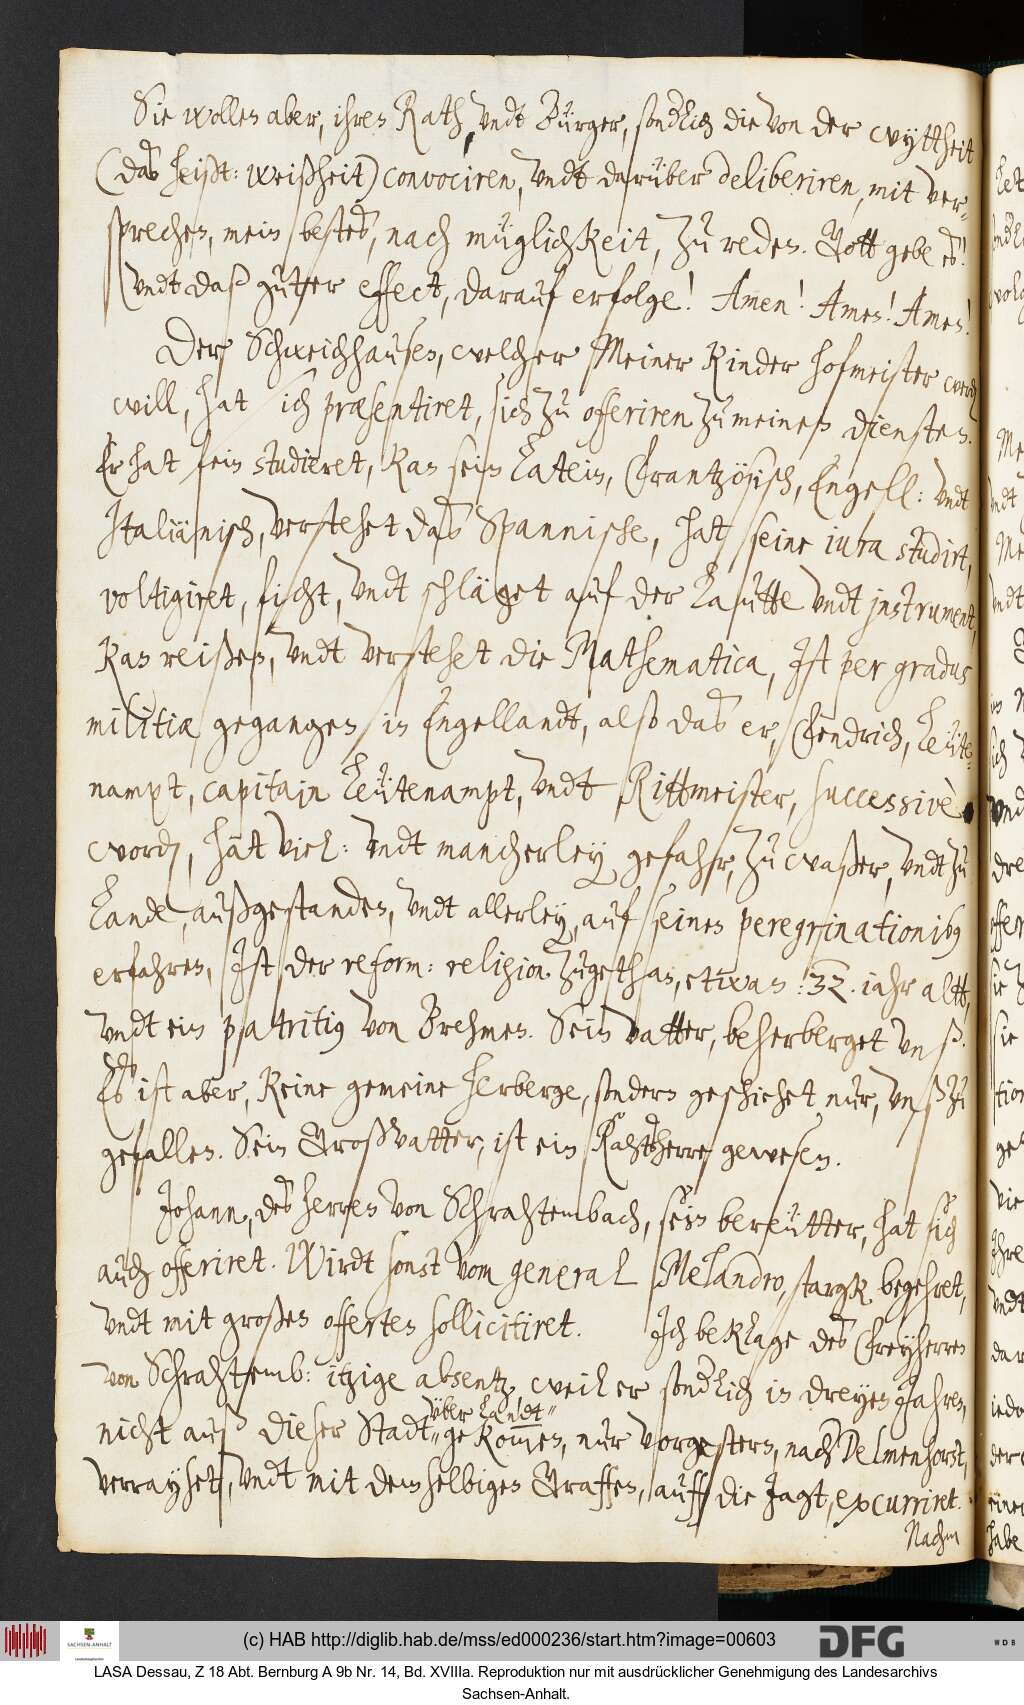 Sie wollen aber, ihren Rath, vndt Bürger, sond'lich die von der wyttheit
(das heißt: weißheit) convociren, vndt darüber deliberiren, mit ver-
sprechen, mein bestes, nach müglichkeit, zu reden. Gott gebe es!
vndt daß guter effect, darauf erfolge! Amen! Amen! Amen!
Der Schweichhausen, welcher Meiner Kinder hofmeister werd
will, hat sich præsentiret, sich zu offeriren zu meinen diensten.
Er hat fein studieret, kan sein Latein, Frantzösisch, Engell: vndt
Italiänisch, verstehet das Spannische, hat seine iura studirt,
voltigiret, ficht, vndt schläget auf der Lautte vndt jnstrument,
kan reißen, vndt verstehet die Mathematica, Jst per gradus
militiæ gegangen in Engellandt, also das er, Fendrich, Leüte-
nampt, capitain Leütenampt, vndt Rittmeister, successivè
word, hat viel: vndt mancherley gefahr, zu waßer, vndt zu
Lande, außgestanden, vndt allerley, auf seinen peregrinationib9
erfahren, Jst der reform: religion zugethan, etwan :32. iahr altt,
vndt ein patriti9 von Brehmen. Sein vatter, beherberget vnß.
Es ist aber, keine gemeine herberge, sondern geschiehet nur, vnß zu
gefallen. Sein Großvatter, ist ein Rahtsherre gewesen.
Johann, des herren von Schrahtembach, sein bereütter, hat sich
auch offeriret. Wirdt sonst vom general Melandro, stargk begehret,
vndt mit großen offerten sollicitiret. Jch beklage des Freyherren
von Schrahtemb: itzige absentz, weil er sond'lich in dreyen Jahren,
über Landt"
nicht auß dieser Stadt "gekommen, nur vorgestern, nach Delmenhorst,
verrayset, vndt mit demselbigen Graffen, auff die Jagt, excurriret.
Nachm
(c) HAB http://diglib.hab.de/mss/ed000236/start.htm?image=00603
SACHSEN-ANHALT
DFG
WDB
LASA Dessau, Z 18 Abt. Bernburg A 9b Nr. 14, Bd. XVIIIa. Reproduktion nur mit ausdrücklicher Genehmigung des Landesarchivs
Sachsen-Anhalt.